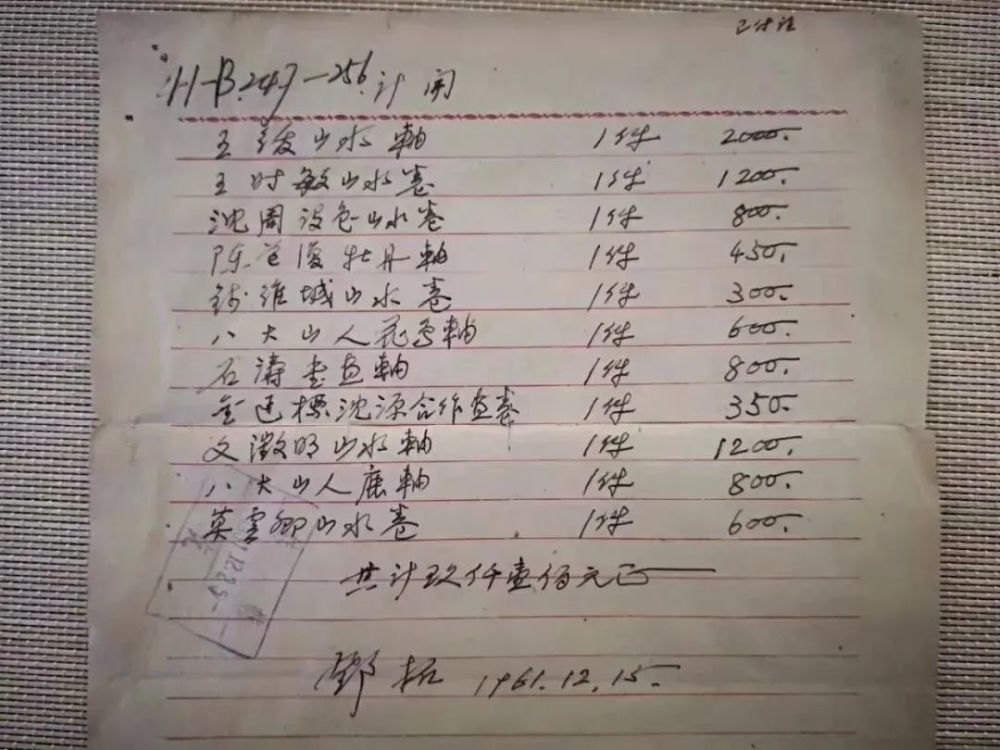 H-B.247—256.计开
王绂山水軸 1件 2000.
王时敏山水卷 1件 1200.
沈周设色山水卷 1件 800.
陈道復牡丹軸 1件 450.
钱维城山水卷 1件 300.
八大山人花鸟軸 1件 600.
石涛书画軸 1件 800.
金廷标沈源合作画卷 1件 350.
文徵明山水軸 1件 1200.
八大山人鹿軸 1件 800.
莫雲卿山水卷 1件 600.
共计玖仟壹佰元正
鄧拓 1961.12.15.